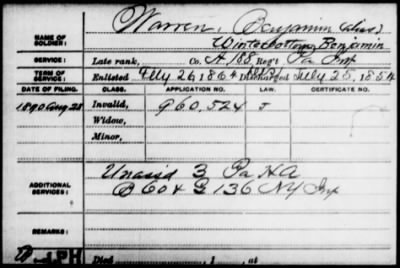 NAME OF SOLDIER: Warren, Benjamin (alias)
Winterbottom, Benjamin
SERVICE: Late rank, Co. A, 188 Reg't Pa Inf
TERM OF SERVICE: Enlisted 26, 1864 25, 1864
DATE OF FILING. CLASS. APPLICATION NO. LAW. CERTIFICATE NO.
1890 Aug 28 Invalid, 960,524 J
Widow,
Minor,
ADDITIONAL SERVICES: Unass'd 3 Pa H A
B 60 & G 136 NY Inf
REMARKS:
PH Died , 1 , at